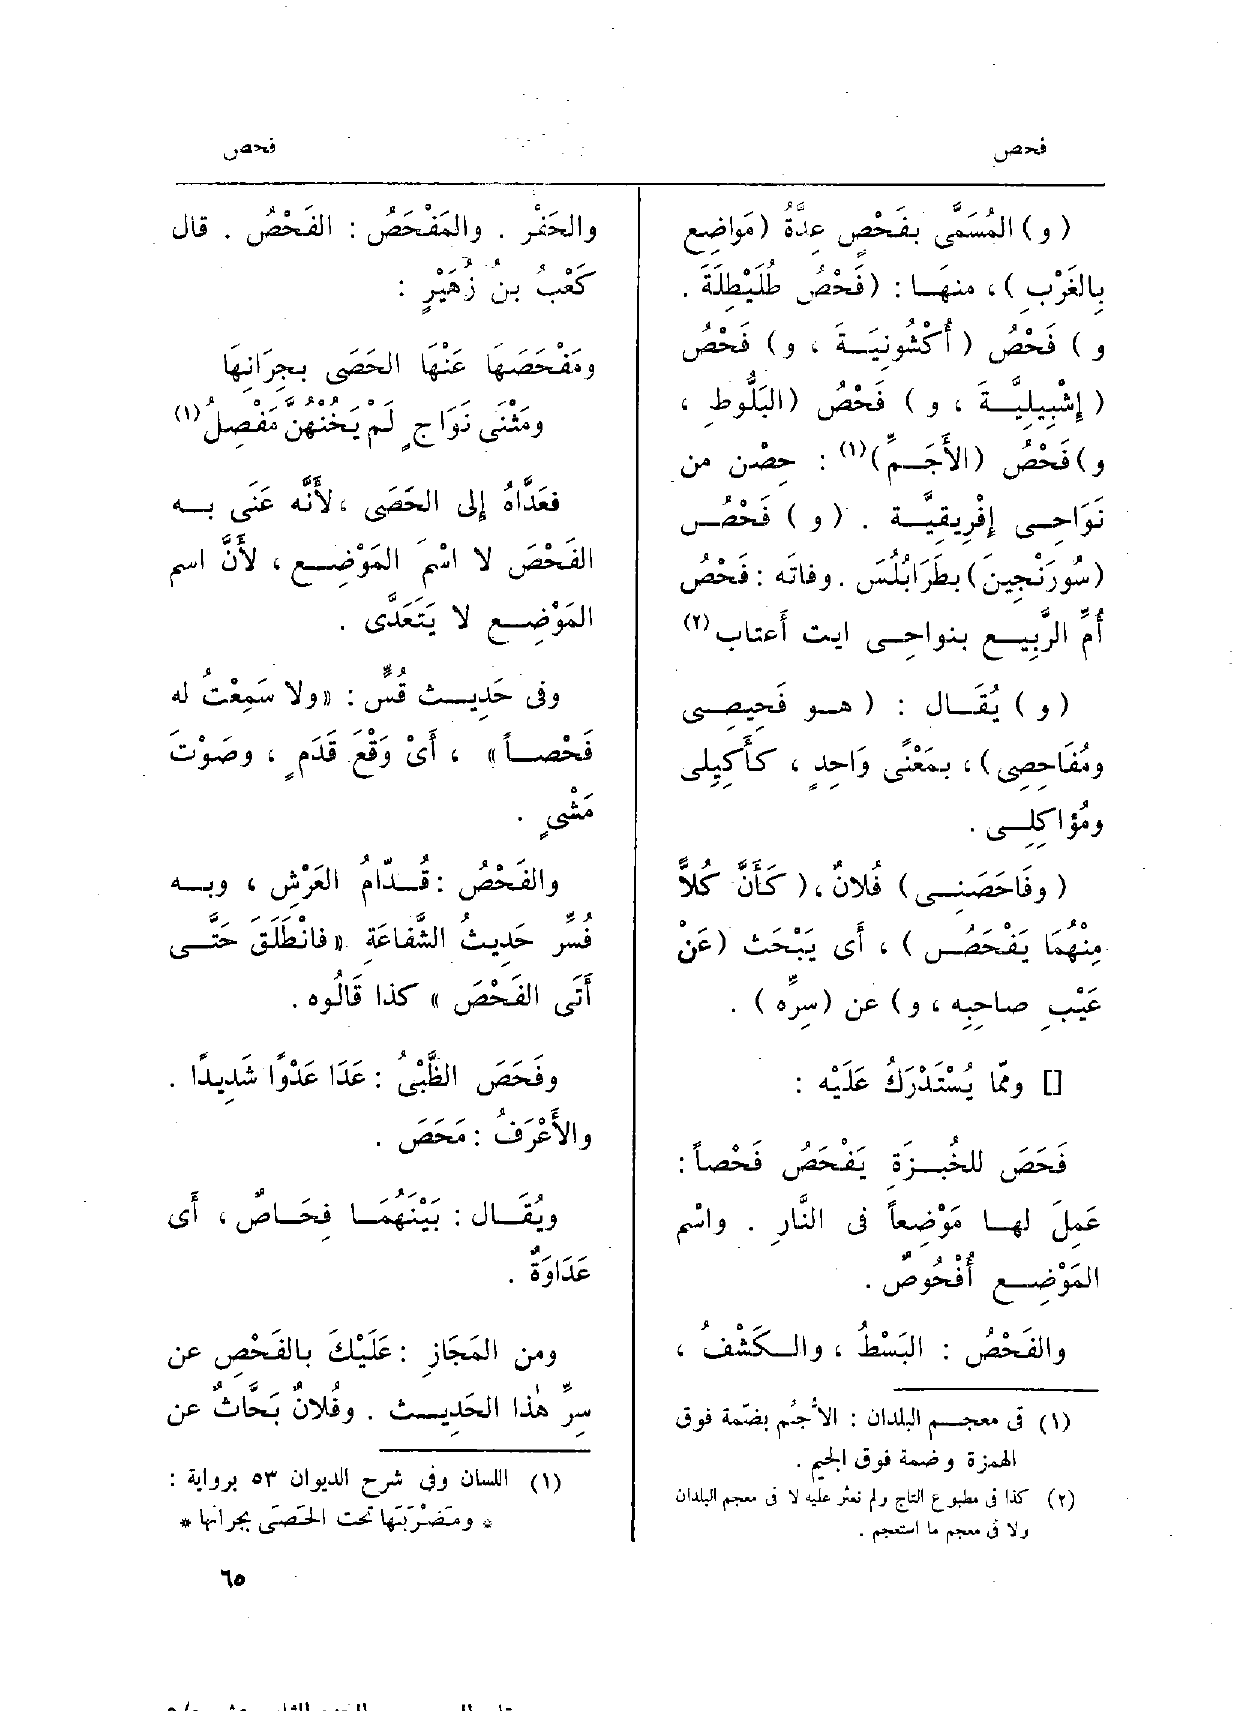 فحص
فحص
(و) المُسَمَّى بفَحْصٍ عِدَّةُ (مَواضِع
بِالغَرْبِ)، منهَا : (فَحْصُ طُلَيْطِلَةَ .
و) فَحْصُ (أُكْشُونِيَةَ ، و) فَحْصُ
(إِشْبِيلِيَّةَ ، و) فَحْصُ (البَلُّوطِ ،
و) فَحْصُ (الأَجَمِّ)(١) : حِصْن من
نَوَاحِى إِفْرِيقِيَّة . (و) فَحْصُ
(سُورَنْجِينَ) بطَرَابُلُسَ . وفاتَه : فَحْصُ
أُمِّ الرَّبِيع بنواحِى ايت أعتاب(٢)
(و) يُقَال : (هو فَحِيصِى
ومُفَاحِصِى)، بمَعْنًى وَاحِدٍ ، كأَكِيلِى
ومُؤَاكِلِى .
(وفَاحَصَنِى) فُلانٌ ،(كَأَنَّ كُلاًّ
مِنْهُمَا يَفْحَصُ) ، أَى يَبْحَث (عَنْ
عَيْبِ صاحِبِه ، و) عن (سِرِّه) .
[] ومّا يُسْتَدْرَكُ عَلَيْه :
فَحَصَ للخُبزَةِ يَفْحَصُ فَحْصاً :
عَمِلَ لها مَوْضِعاً فى النَّارِ . واسْم
المَوْضِع أُفْحُوصٌ .
والفَحْصُ : البَسْطُ ، والكَشْفُ ،
(١) فى معجم البلدان : الأُجُم بضمة فوق
الهمزة وضمة فوق الجيم .
(٢) كذا فى مطبوع التاج ولم نعثر عليه لا فى معجم البلدان
ولا فى معجم ما استعجم .
والحَفْر . والمَفْحَصُ : الفَحْصُ . قال
كَعْبُ بنُ زُهَيْرٍ :
ومَفْحَصَها عَنْها الحَصَى بجِرَانِها
ومَثْنَى نَوَاجٍ لَمْ يَخُنْهُنَّ مَفْصِلُ(١)
فعَدَّاهُ إلى الحَصَى ، لأَنَّه عَنَى به
الفَحْصَ لا اسْمَ المَوْضِع ، لأَنَّ اسم
المَوْضِع لا يَتَعَدَّى .
وفى حَدِيث قُسٍّ : «ولا سَمِعْتُ له
فَحْصاً» ، أَىْ وَقْعَ قَدَمٍ ، وصَوْتَ
مَشْىٍ .
والفَحْصُ : قُدّامُ العَرْشِ ، وبه
فُسِّر حَدِيثُ الشَّفَاعَةِ «فانْطَلَقَ حَتَّى
أَتَى الفَحْصَ» كذا قَالُوه .
وفَحَصَ الظَّبْىُ : عَدَا عَدْوًا شَدِيدًا .
والأَعْرَفُ : مَحَصَ .
ويُقَال : بَيْنَهُمَا فِحَاصٌ ، أَى
عَدَاوَةٌ .
ومن المَجَازِ : عَلَيْكَ بالفَحْصِ عن
سِرِّ هٰذا الحَدِيث . وفُلانٌ بَحَّاثٌ عن
(١) اللسان وفى شرح الديوان ٥٣ برواية :
* ومَضْرَبَها تحت الحَصَى بجرانها *
٦٥